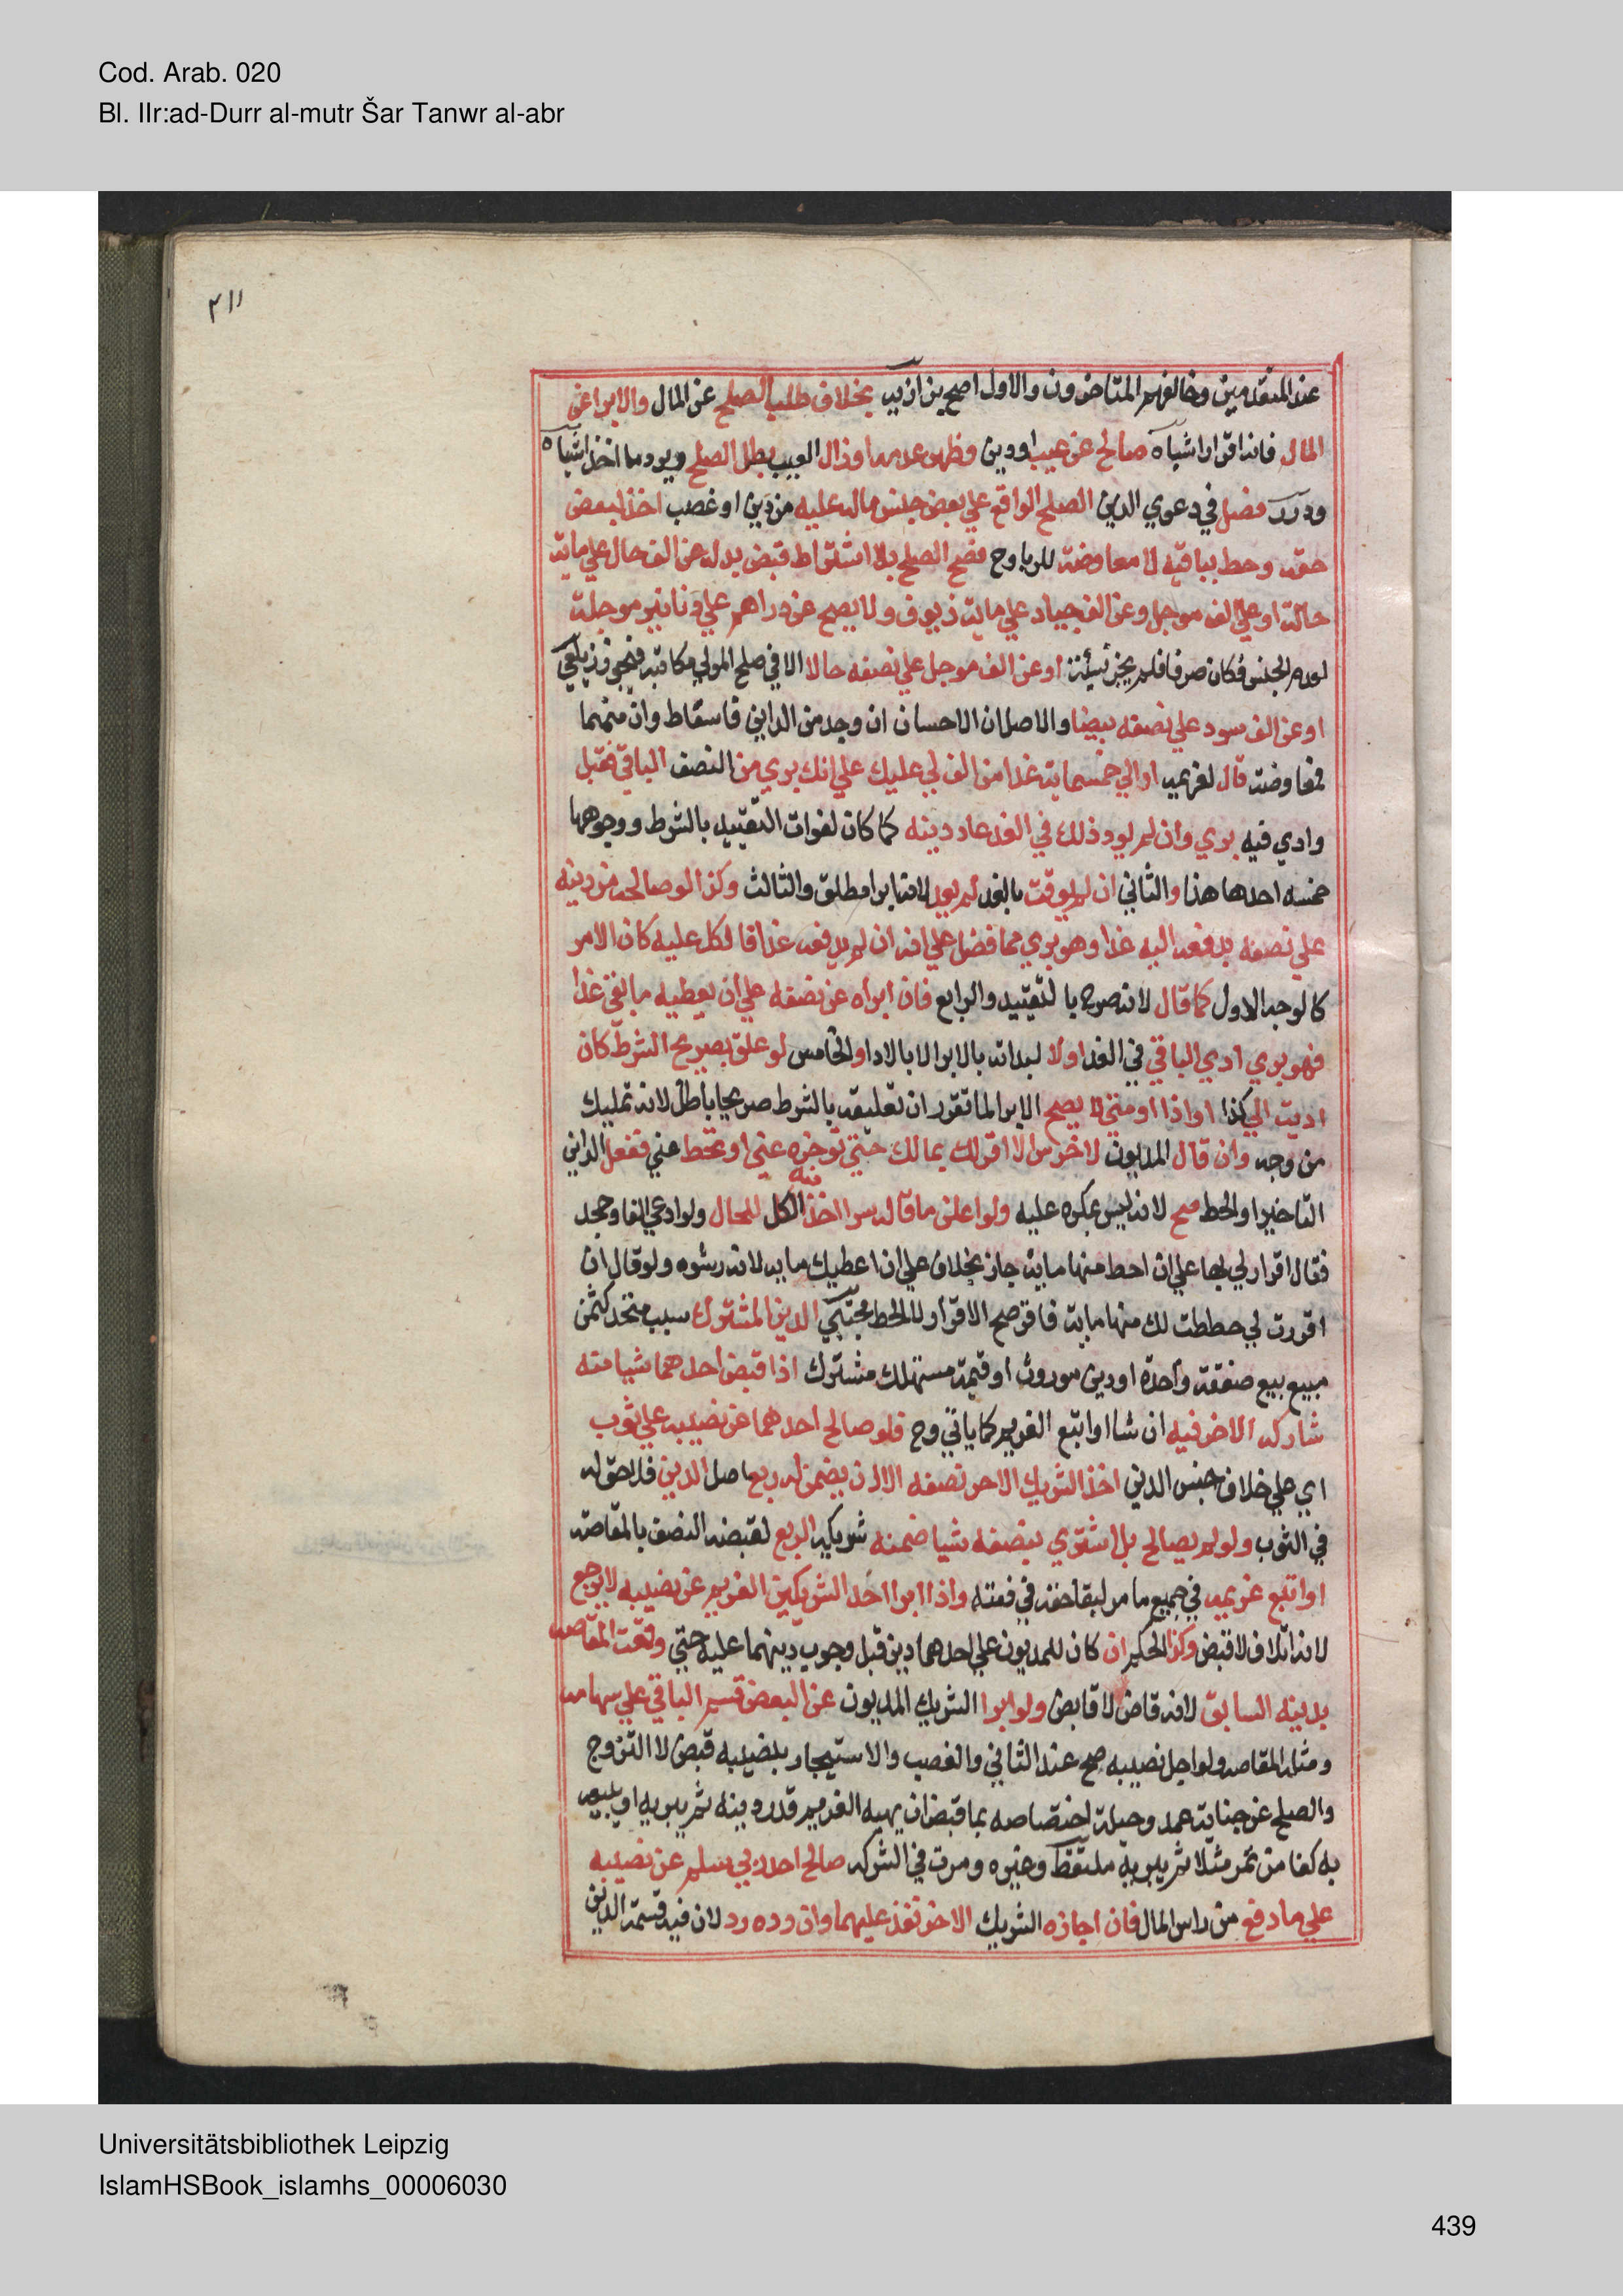 Cod. Arab. 020
Bl. IIr:ad-Durr al-mutr Šar Tanwr al-abr
٢١١
عند المتقدمين وخالفهم المتاخرون والاول اصح بزازيه بخلاف طلب الصلح عن المال والابرا عن
المال فانه اقرار اشباه صالح عن عيب او دين وظهر عدمه او زال العيب بطل الصلح ويرد ما اخذ اشباه
ودرر فصل في دعوي الدين الصلح الواقع علي بعض جنس ماله عليه من دين او غصب اخذ لبعض
حقه وحط لباقيه لا معاوضة للربا وح فصح الصلح بلا اشتراط قبض بدله عن الف حال علي ماية
حالة او علي الف موجل وعن الف جياد علي ماية زيوف ولا يصح عن دراهم علي دنانير موجلة
لعدم الجنس فكان صرفا فلم يجز نسيئة او عن الف موجل علي نصفه حالا الا في صلح المولي مكاتبه فيجوز زيلعي
او عن الف سود علي نصفه بيضا والاصل ان الاحسان ان وجد من الداين فاسقاط وان منهما
فمعاوضة قال لغريمه اد الي خمسماية غدا من الف لي عليك علي انك بري من النصف الباقي فقبل
وادي فيه بري وان لم يود ذلك في الغد عاد دينه كما كان لفوات التقييد بالشرط ووجوهها
خمسه احدها هذا والثاني ان لم يوقت بالغد لم يعد لانه ابرا مطلق والثالث وكذا لو صالحه من دينه
علي نصفه يدفعه اليه غدا وهو بري مما فضل علي انه ان لم يدفعه غدا فالكل عليه كان الامر
كالوجه الاول كما قال لانه صرح بالتقييد والرابع فان ابراه عن نصفه علي ان يعطيه ما بقي غدا
فهو بري ادي الباقي في الغد اولا لبداته بالابرا لا بالادا والخامس لو علق بصريح الشرط كان
اديت الي كذا او اذا او متي لا يصح الابرا لما تقرر ان تعليقه بالشرط صريحا باطل لانه تمليك
من وجه وان قال المديون لاخر سرا لا اقر لك بمالك حتي توخره عني او تحط عني ففعل الداين
التاخير او الحط صح لانه ليس بمكره عليه ولو اعلن ما قاله سرا اخذ منه الكل للحال ولو ادعي الفا وجحد
فقال اقرر لي بها علي ان احط منها ماية جاز بخلاف علي ان اعطيك ماية لانه رشوه ولو قال ان
اقررت لي حططت لك منها ماية فاقر صح الاقرار لا الحط مجتبي الدين المشترك سبب متحد كثمن
مبيع بيع صفقة واحدة او دين موروث او قيمة مستهلك مشترك اذا قبض احدهما شيا منه
شاركه الاخر فيه ان شا او اتبع الغريم كما ياتي وح فلو صالح احدهما عن نصيبه علي ثوب
اي علي خلاف جنس الدين اخذ الشريك الاخر نصفه الا ان يضمن له ربع اصل الدين فلا حق له
في الثوب ولو لم يصالح بل اشتري بنصفه شيا ضمنه شريكه الربع لقبضه النصف بالمقاصة
او اتبع غريمه في جميع ما مر لبقا حقه في ذمته واذا ابرا احد الشريكين الغريم عن نصيبه لا يرجع
لانه اتلاف لا قبض وكذا الحكم ان كان للمديون علي احدهما دين قبل وجوب دينهما عليه حتي وقعت المقاصه
بدينه السابق لانه قاض لا قابض ولو ابرا الشريك المديون عن البعض قسم الباقي علي سهامه
ومثله المقاصه ولو اجل نصيبه صح عند الثاني والغصب والاستيجار بنصيبه قبض لا التزوج
والصلح عن جناية عمد وحيلة اختصاصه بما قبض ان يهبه الغريم قدر دينه ثم يبريه او يبيعه
به كفا من تمر مثلا ثم يبريه ملتقط وغيره ومرت في الشركه صالح احد ربي سلم عن نصيبه
علي ما دفع من راس المال فان اجازه الشريك الاخر نفذ عليهما وان رده رد لان فيه قسمة الدين
Universitätsbibliothek Leipzig
IslamHSBook_islamhs_00006030
439